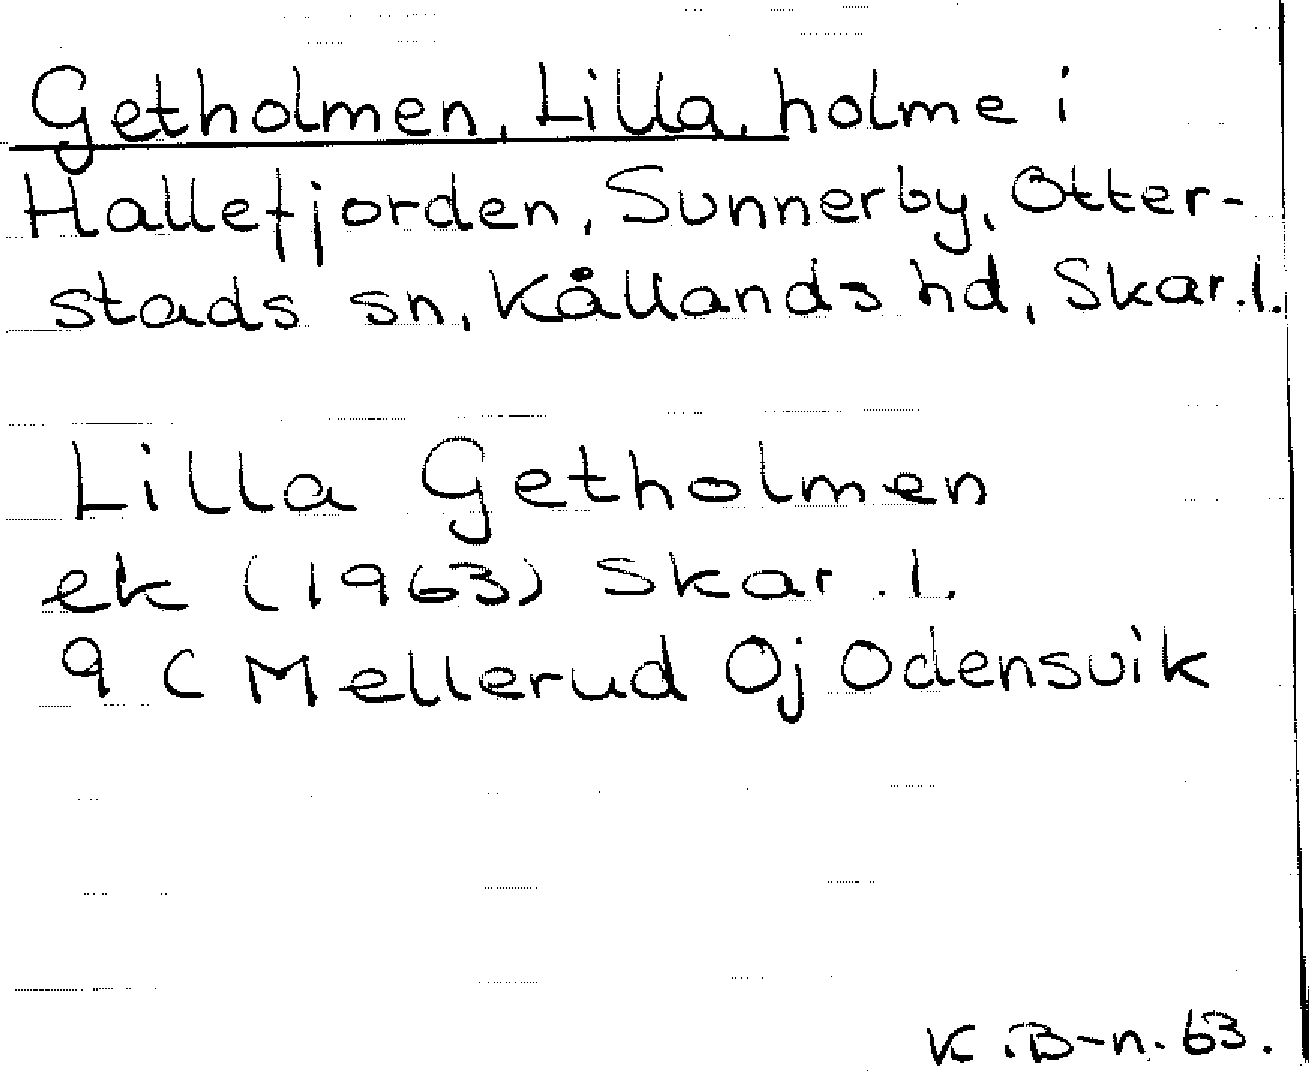 Getholmen, Lilla, holme i
Hallefjorden, Sunnerby, Otter-
stads sn, Kållands hd, Skar.l.
Lilla Getholmen
ek (1963) Skar.l.
9 C Mellerud Oj Odensvik
K.B-n. 63.